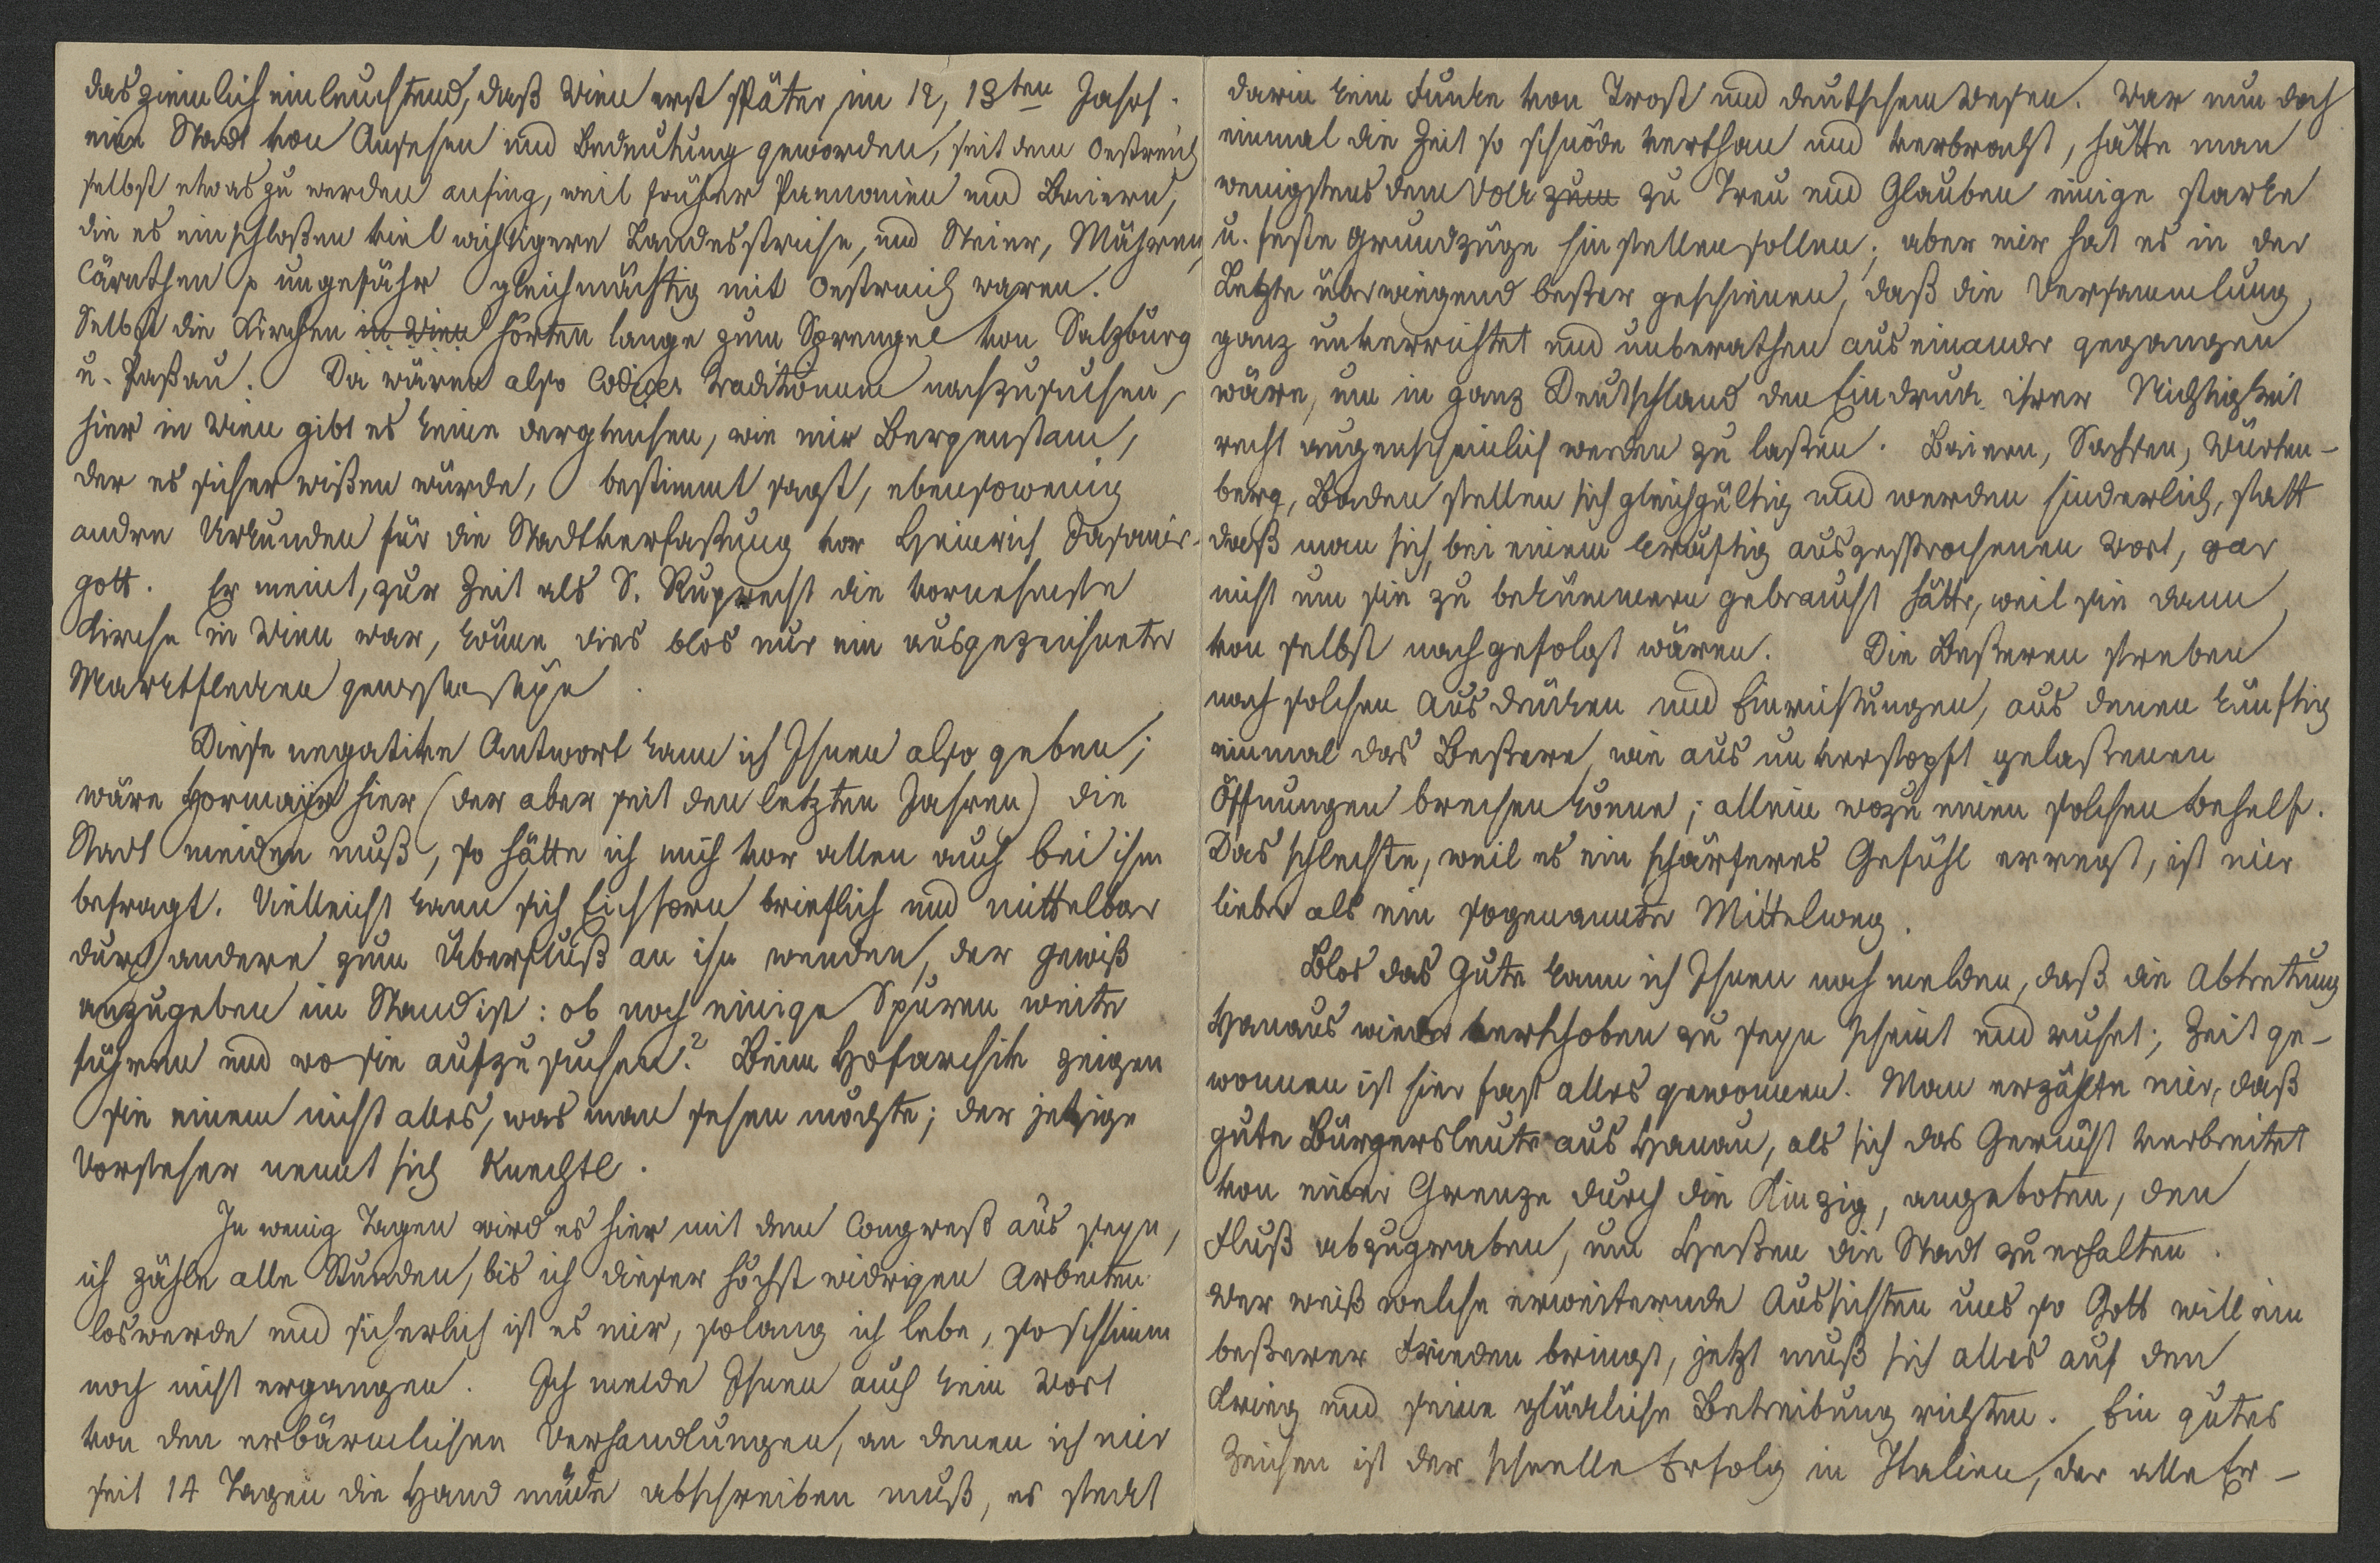 das ziemlich einleuchtend, daß Wien erst später, im 12, 13ten Jahrh.
eine Stadt von Ansehen und Bedeutung geworden, seit dem Oestreich
selbst etwas zu werden anfing, weil früher Pannonien und Baiern,
die es einschloßen viel wichtigere Landesstriche, und Steier, Mähren,
Cärnthen p ungefähr gleichmächtig mit Oestreich waren.
Selbst die Kirchen in Wien hörten lange zum Sprengel von Salzburg
u. Paßau. Da wären also Codices traditionum nachzusuchen,
hier in Wien gibt es keine dergleichen, wie mir Bergenstam,
der es sicher wißen würde, bestimmt sagt, ebensowenig
andre Urkunden für die Stadtverfaßung vor Heinrich Jasomir-
gott. Er meint, zur Zeit als S. Ruprecht die vornehmste
Kirche in Wien war, könne dies blos nur ein ausgezeichneter
Marktflecken gewesen seyn.
Diese negative Antwort kann ich Ihnen also geben;
wäre Hormair hier (der aber seit den letzten Jahren) die
Stadt meiden muß, so hätte ich mich vor allen auch bei ihm
befragt. Vielleicht kann sich Eichhorn brieflich und mittelbar
durch andere zum Überfluß an ihn wenden, der gewiß
anzugeben im Stand ist: ob noch einige Spuren weiter
führen und wo sie aufzusuchen? Beim Hofarchiv zeigen
sie einem nicht alles, was man sehen möchte; der jetzige
Vorsteher nennt sich Knechtl.
In wenig Tagen wird es hier mit dem Congreß aus seyn,
ich zähle alle Stunden, bis ich dieser höchst widrigen Arbeiten
loswerde und sicherlich ist es mir, solang ich lebe, so schlimm
noch nicht ergangen. Ich melde Ihnen auch kein Wort
von den erbärmlichen Verhandlungen, an denen ich mir
seit 14 Tagen die Hand müde abschreiben muß, es steckt
darin kein Funke von Trost und deutschem Wesen. War nun doch
einmal die Zeit so schnöde verthan und verbracht, hätte man
wenigstens dem Volk zum zu Treu und Glauben einige starke
u. feste Grundzüge hinstellen sollen; aber mir hat es in der
Letzte überwiegend beßer geschienen, daß die Versammlung,
ganz unverrichtet und unberathen auseinander gegangen
wäre, um in ganz Deutschland den Eindruck ihrer Nichtigkeit
recht augenscheinlich werden zu laßen. Baiern, Sachsen, Würten-
berg, Baden stellen sich gleichgültig und werden hinderlich, statt
daß man sich, bei einem kräftig ausgesprochenen Wort, gar
nicht um sie zu bekümmern gebraucht hätte, weil sie dann
von selbst nachgefolgt wären. Die Beßeren streben
nach solchen Ausdrücken und Einrichtungen, aus denen künftig
einmal das Beßere, wie aus unverstopft gelaßenen
Öffnungen brechen könne; allein wozu einen solchen Behelf.
Das schlechte, weil es ein schärferes Gefühl erregt, ist mir
lieber als ein sogenannter Mittelweg.
Blos das Gute kann ich Ihnen noch melden, daß die Abtretung
Hanaus wieder verschoben zu seyn scheint und ruhet; Zeit ge-
wonnen ist hier fast alles gewonnen. Man erzählte mir, daß
gute Bürgersleute aus Hanau, als sich das Gerücht verbreitet
von einer Grenze durch die Kinzig, angeboten, den
Fluß abzugraben, um Heßen die Stadt zu erhalten.
Wer weiß welche erweiternde Aussichten uns so Gott will ein
beßerer Frieden bringt, jetzt muß sich alles auf den
Krieg und seine glückliche Betreibung richten. Ein gutes
Zeichen ist der schnelle Erfolg in Italien, der alle Er-